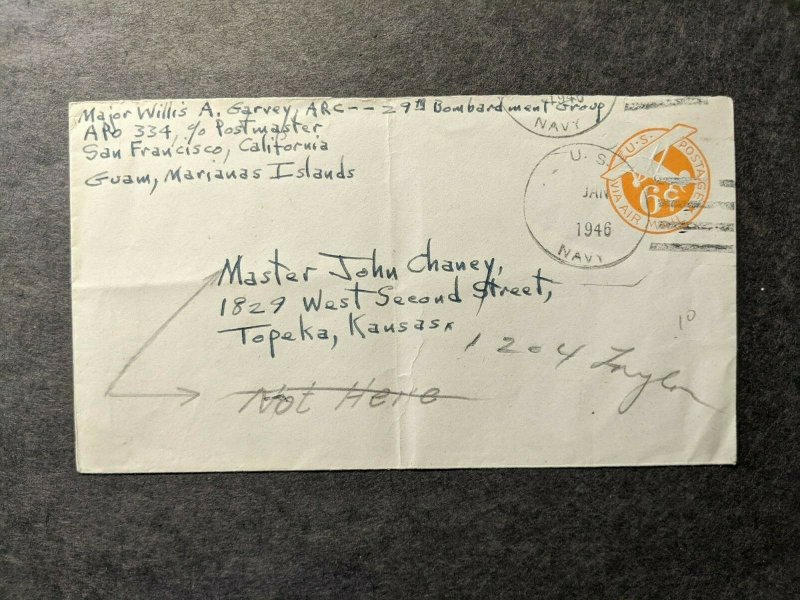 Major Willis A. Garvey, ARC -- 29th Bombardment Group
APO 334, c/o Postmaster
San Francisco, California
Guam, Marianas Islands
1946
NAVY
U. S.
JAN
1946
NAVY
U.S. POSTAGE
6¢
VIA AIR MAIL
Master John Chaney,
1829 West Second Street,
Topeka, Kansas
1204 Taylor
10
Not Here